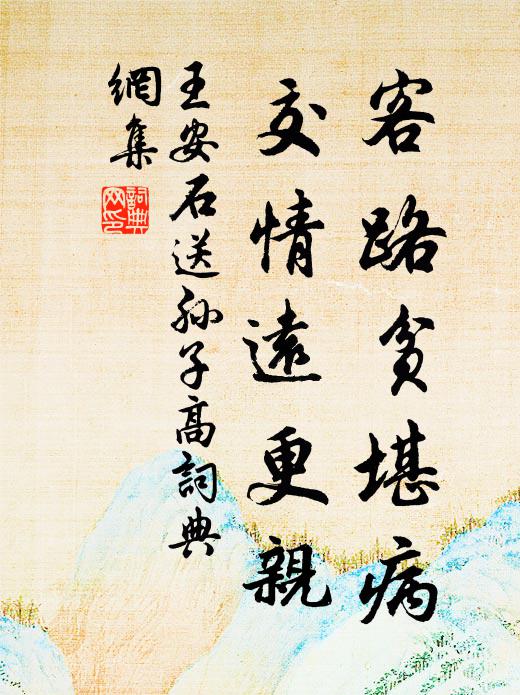 客路貧堪病
交情遠更親
王安石送孙子高詞典
網集
詞典
网印